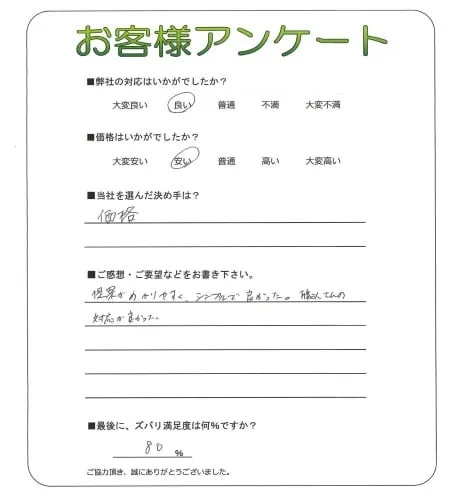 お客様アンケート
■弊社の対応はいかがでしたか？
大変良い 良い 普通 不満 大変不満
■価格はいかがでしたか？
大変安い 安い 普通 高い 大変高い
■当社を選んだ決め手は？
価格
■ご感想・ご要望などをお書き下さい。
がわかりやすく、シンプルで良かった。
対応が良かった。
■最後に、ズバリ満足度は何%ですか？
80 %
ご協力頂き、誠にありがとうございました。